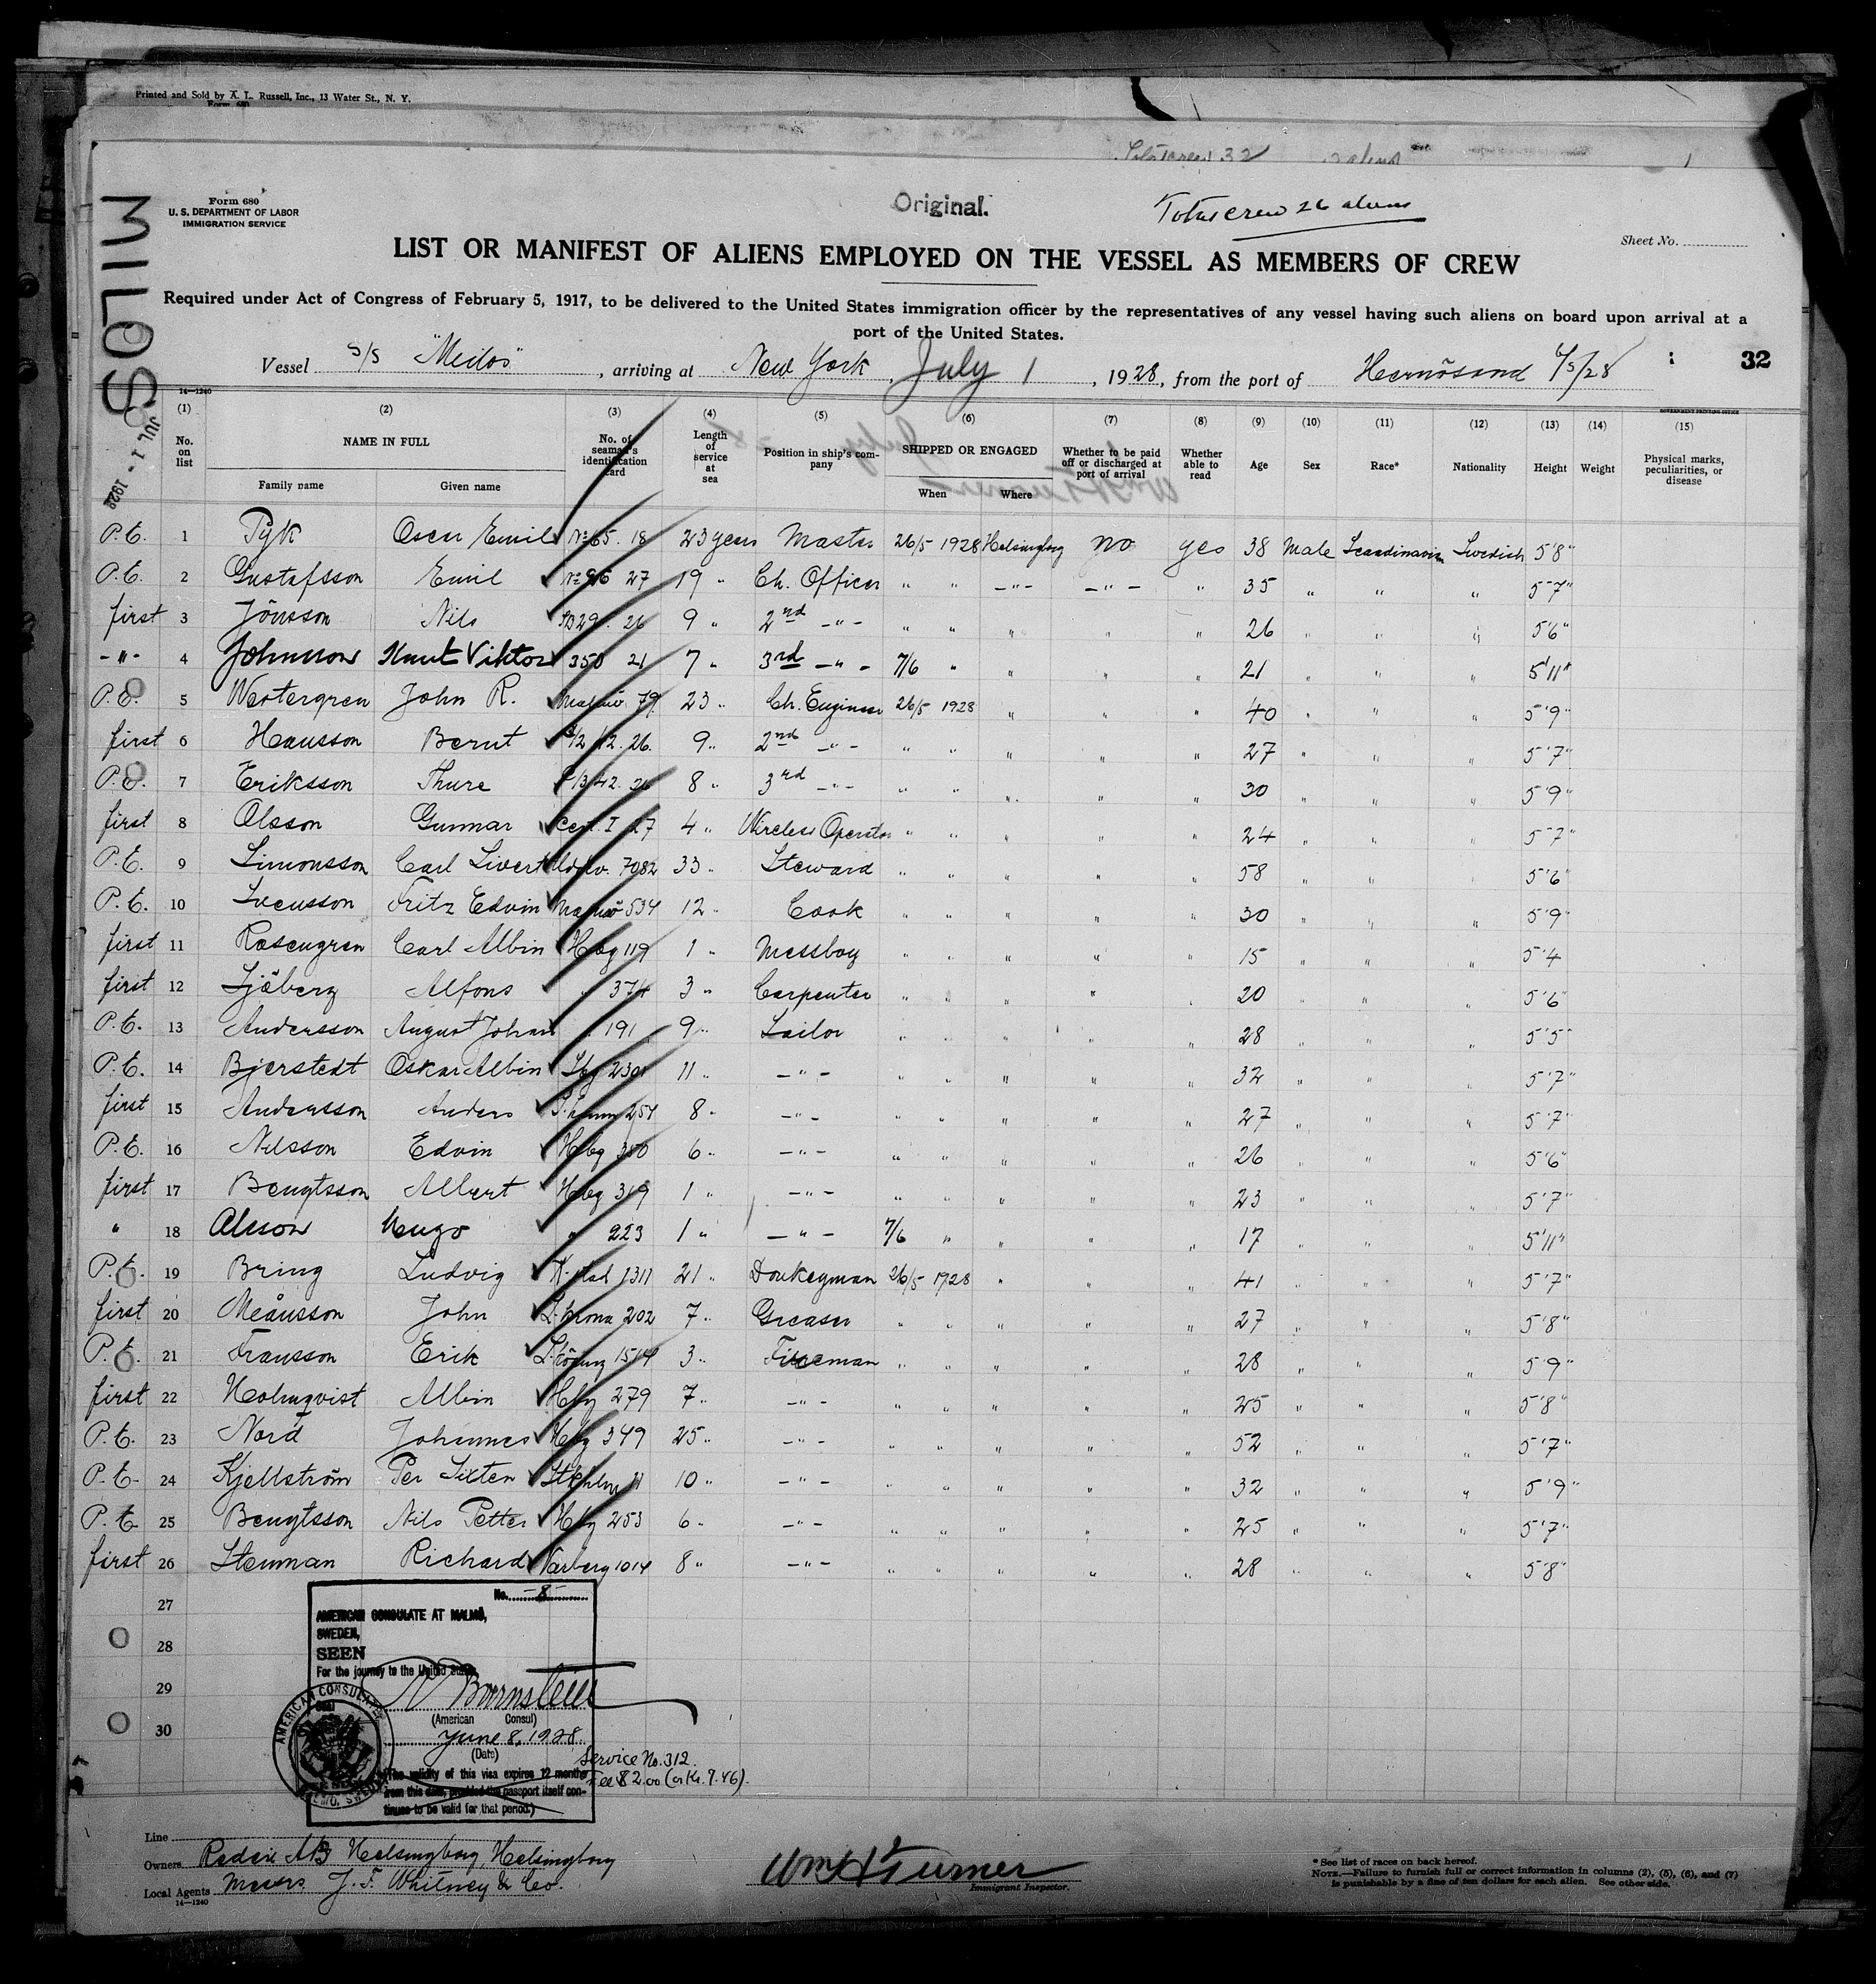 Printed and Sold by A. L. Russell, Inc., 13 Water St., N. Y.
Form 680
32
MILOS
JUL 1 - 1928
Form 680
U. S. DEPARTMENT OF LABOR
IMMIGRATION SERVICE
Original.
Total crew 26 aliens
Sheet No.
LIST OR MANIFEST OF ALIENS EMPLOYED ON THE VESSEL AS MEMBERS OF CREW
Required under Act of Congress of February 5, 1917, to be delivered to the United States immigration officer by the representatives of any vessel having such aliens on board upon arrival at a
port of the United States.
Vessel S/S "Milos", arriving at New York, July 1, 1928, from the port of Hernösand 32
14—1240
GOVERNMENT PRINTING OFFICE
(1) (2) (3) (4) (5) (6) (7) (8) (9) (10) (11) (12) (13) (14) (15)
No. on list NAME IN FULL Family name Given name No. of seaman's identification card Length of service at sea Position in ship's company SHIPPED OR ENGAGED When Where Whether to be paid off or discharged at port of arrival Whether able to read Age Sex Race* Nationality Height Weight Physical marks, peculiarities, or disease
P.E. 1 Pyk Oscar Emil No 65. 18 23 years Master 26/5 1928 Helsingborg no yes 38 Male Scandinavian Swedish 5'8"
P.E. 2 Gustafsson Emil 27 19 " Ch. Officer " " -"- -"- " 35 " " " 5'7"
first 3 Jönsson Nils 29. 26 9 " 2nd -"- " " " " " 26 " " " 5'6"
-"- 4 Johnsson Knut Viktor 350 21 7 " 3rd -"- 7/6 " " " " 21 " " " 5'11"
P.E. 5 Westergren John R. Malmö 79 23 " Ch. Engineer 26/5 1928 " " " 40 " " " 5'9"
first 6 Hansson Bernt 26. 9 " 2nd -"- " " " " " 27 " " " 5'7"
P.E. 7 Eriksson Thure 8 " 3rd -"- " " " " " 30 " " " 5'9"
first 8 Olsson Gunnar Cert. I 27 4 " Wireless Operator " " " " " 24 " " " 5'7"
P.E. 9 Simonsson Carl Sivert 7082 33 " Steward " " " " " 58 " " " 5'6"
P.E. 10 Svensson Fritz Edvin Malmö 534 12 " Cook " " " " " 30 " " " 5'9"
first 11 Rosengren Carl Albin Hbg 119 1 " Messboy " " " " " 15 " " " 5'4
first 12 Sjöberg Alfons " 374 3 " Carpenter " " " " " 20 " " " 5'6"
P.E. 13 Andersson August Johan " 191 9 " Sailor " " " " " 28 " " " 5'5"
P.E. 14 Bjerstedt Oskar Albin 11 " -"- " " " " " 32 " " " 5'7"
first 15 Andersson Anders 8 " -"- " " " " " 27 " " " 5'7"
P.E. 16 Nilsson Edvin Hbg 350 6 " -"- " " " " " 26 " " " 5'6"
first 17 Bengtsson Albert Hbg 319 1 " -"- " " " " " 23 " " " 5'7"
" 18 Olsson Hugo " 223 1 " -"- 7/6 " " " " 17 " " " 5'11"
P.E. 19 Bring Ludvig 1311 21 " Donkeyman 26/5 1928 " " " 41 " " " 5'7"
first 20 Månsson John L.krona 202 7 " Greaser " " " " " 27 " " " 5'8"
P.E. 21 Fransson Erik 3 " Fireman " " " " " 28 " " " 5'9"
first 22 Holmqvist Albin Hbg 279 7 " -"- " " " " " 25 " " " 5'8"
P.E. 23 Nord Johannes Hbg 349 25 " -"- " " " " " 52 " " " 5'7"
P.E. 24 Kjellström Per Sixten 10 " -"- " " " " " 32 " " " 5'9"
P.E. 25 Bengtsson Nils Petter Hbg 253 6 " -"- " " " " " 25 " " " 5'7"
first 26 Stenman Richard Varberg 1014 8 " -"- " " " " " 28 " " " 5'8"
27
28
29
30
No. -8-
AMERICAN CONSULATE AT MALMÖ,
SWEDEN,
SEEN
For the journey to the United States
(American Consul)
June 8, 1928.
(Date)
(The validity of this visa expires 12 months
from this date, provided the passport itself con-
tinues to be valid for that period.)
AMERICAN CONSULATE
MALMO, SWEDEN
Service No. 312
Fee $ 2.00 (or Kr. 7.46).
Line
Owners Rederi AB Helsingborg, Helsingborg
Local Agents Messrs. J. F. Whitney & Co.
14—1240
Wm H Turner
Immigrant Inspector.
* See list of races on back hereof.
NOTE.—Failure to furnish full or correct information in columns (2), (5), (6), and (7)
is punishable by a fine of ten dollars for each alien. See other side.